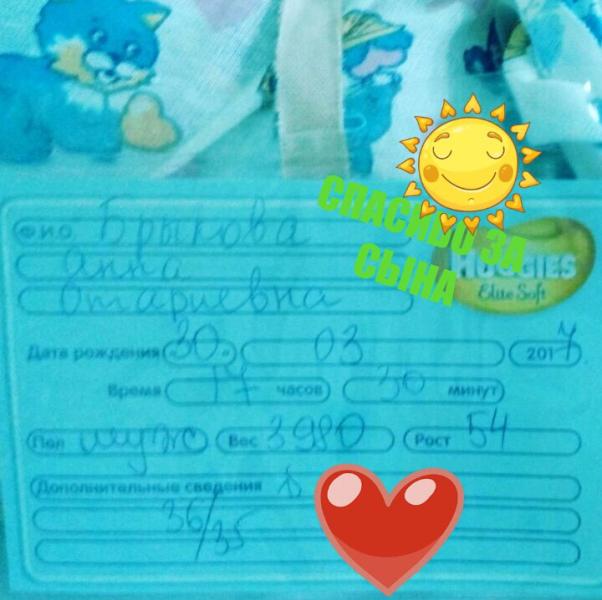 СПАСИБО ЗА
СЫНА
HUGGIES
Elite Soft
Ф.И.О. Брыкова
Анна
Отариевна
Дата рождения 30 03 2017
Время 17 часов 30 минут
Пол муж Вес 3980 Рост 54
Дополнительные сведения
36/35